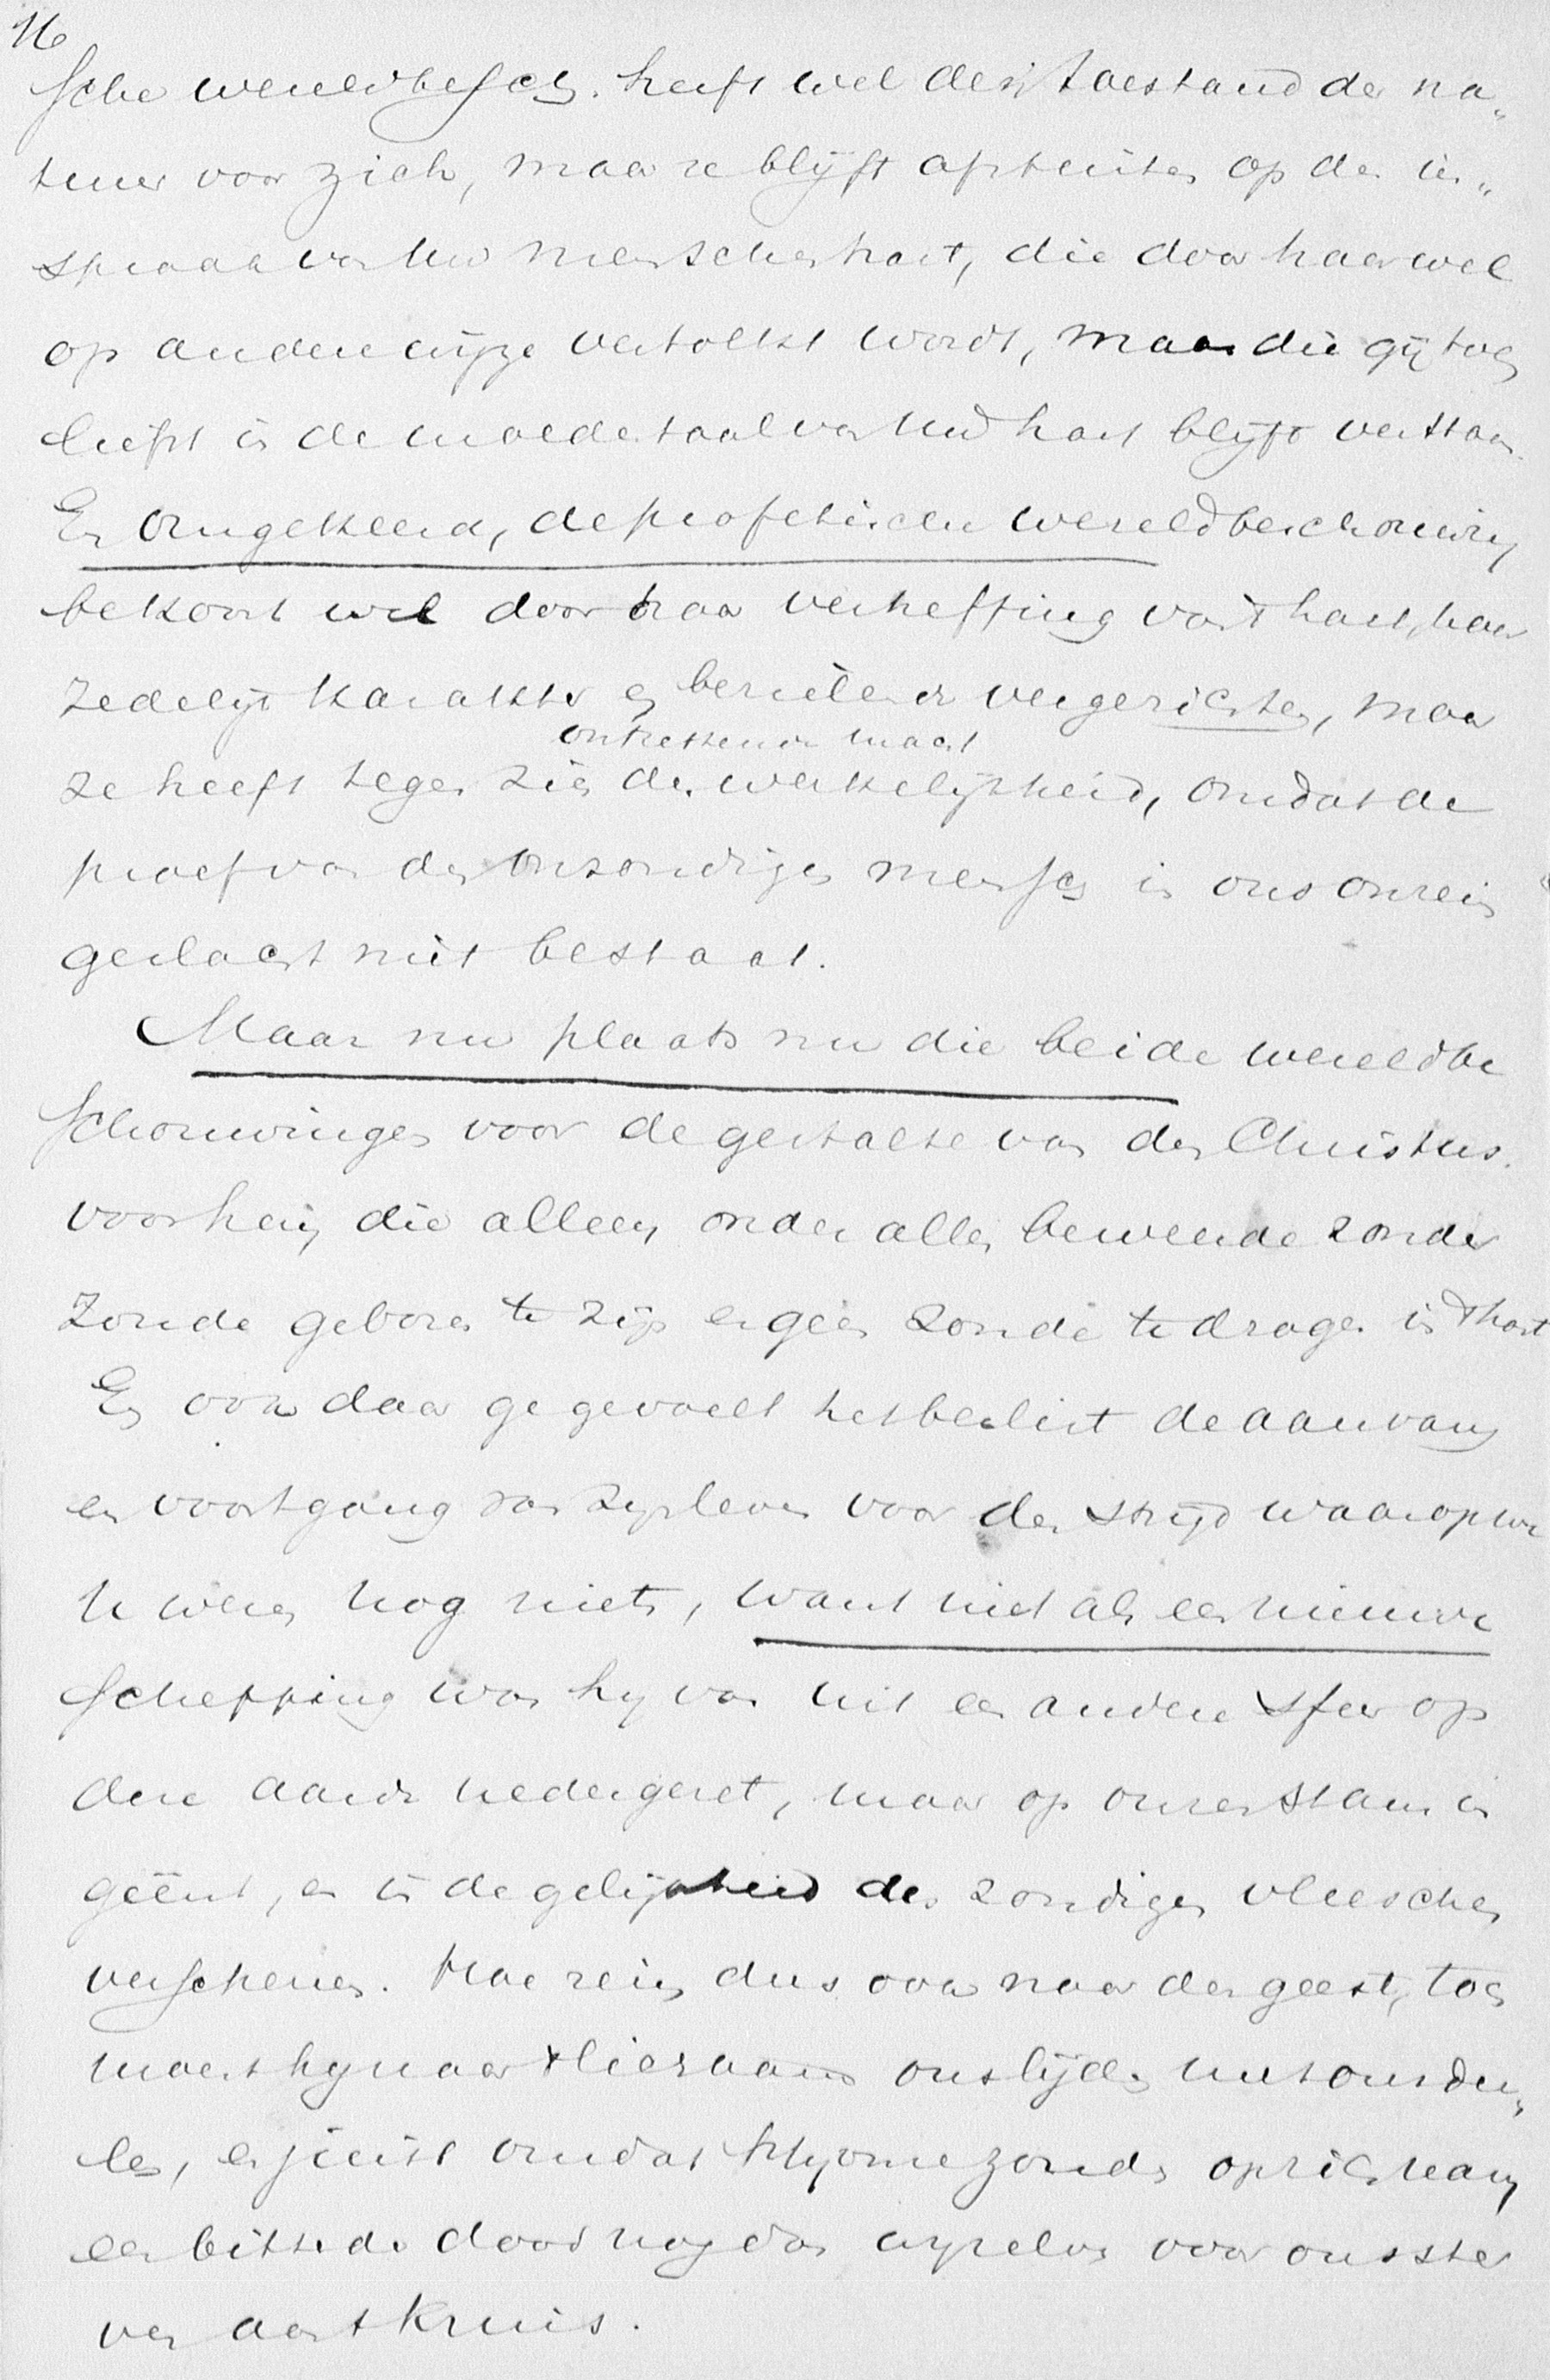 16
sche wereldbesch. heeft wel den toestand der na„
tuur voor zich, maar ze blijft afstuiten op de in„
spraak van uw menschenhart, die door haar wel
op andere wijze vertolkt wordt, maar die gij toch
liefst in de moedertaal van uw hart blijft verstaan.
En omgekeerd, de profetische wereldbeschouwing
bekoort wel door haar verheffing van 't hart, haar
zedelijk karakter en bezielende vergezichten, maar
ontzettende macht
ze heeft tegen zich de werkelijkheid, omdat de
proef van den onzondigen mensch in ons onrein
geslacht niet bestaat.
Maar nu plaats nu die beide wereldbe
schouwingen voor de gestalte van den Christus.
voor hem, die alleen onder allen beweerde zonder
zonde geboren te zijn en geen zonde te dragen in 't hart
En ook daar ge gevoelt het beslist de aanvang
en voortgang van zijn leven voor den strijd waarop we
u wezen nog niets, want niet als een nieuwe
schepping was hij van uit een andere sfeer op
deze aarde nedergezet, maar op onzen stam in
geënt, en in de gelijkheid des zondigen vleesches
verschenen. Hoe rein dus ook naar den geest, toch
moest hij naar 't lichaam ons lijden met ons dee„
len, en juist omdat Hij onze zonde op zich nam
een bitterder dood nog dan een voor ons ster
ven aan 't kruis.